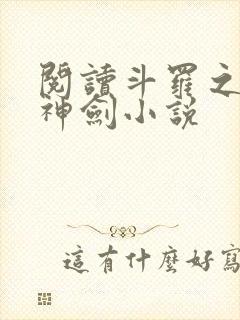 閱讀斗羅之
神劍小說
這有什麼好寫